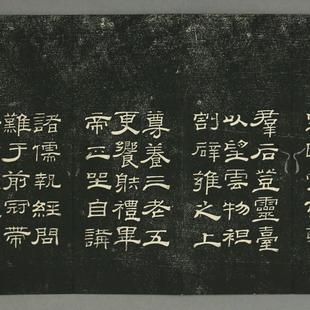 羣后登靈臺
以望雲物袒
割辟雍之上
尊養三老五
更饗射禮畢
帝正坐自講
諸儒執經問
難于前冠帶